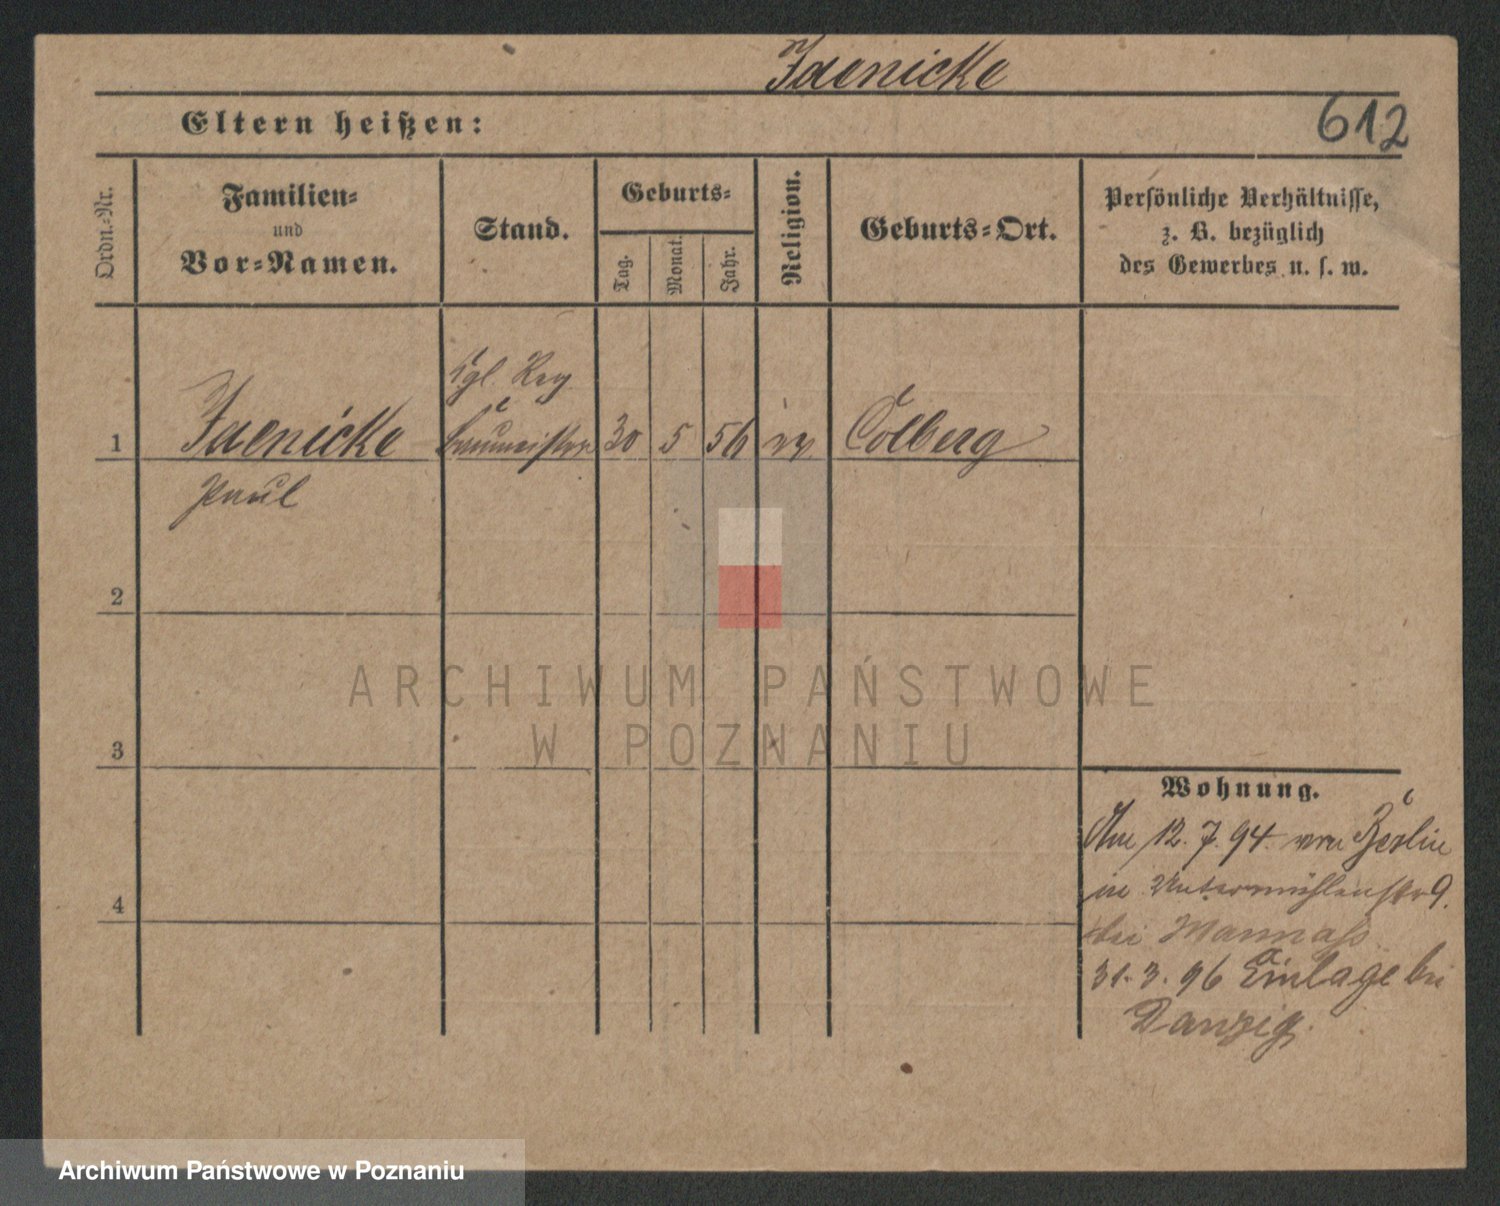 Jaenicke
612
Eltern heißen:
Ordn.-Nr.
Familien-
und
Vor-Namen.
Stand.
Geburts-
Tag.
Monat.
Jahr.
Religion.
Geburts-Ort.
Persönliche Verhältnisse,
z. B. bezüglich
des Gewerbes u. s. w.
Kgl. Reg
1 Jaenicke Baumeister 30 5 56 ev Colberg
Paul
2
3
4
Wohnung.
Am 12. 7. 94. von Berlin
in Untermühlenstr 9.
bei Mannass
31. 3. 96 Einlage bei
Danzig.
ARCHIWUM PAŃSTWOWE
W POZNANIU
Archiwum Państwowe w Poznaniu